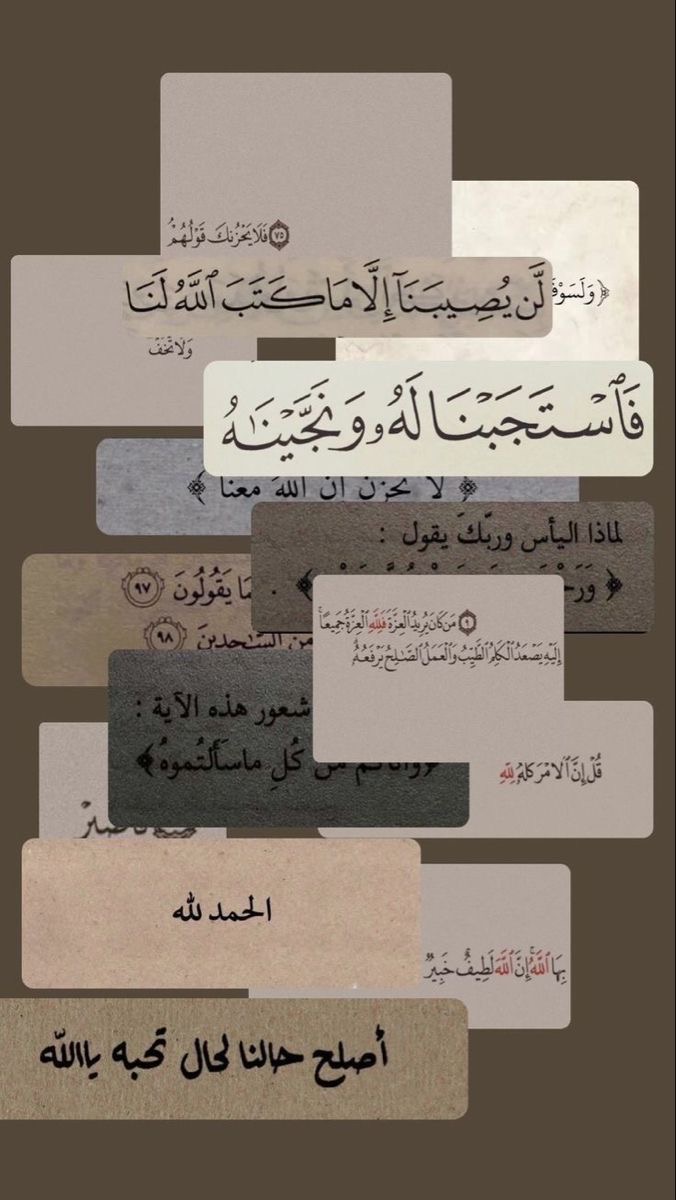 ۷۵ فَلَا يَحْزُنكَ قَوْلُهُمْ
﴿وَلَسَوْفَ
لَّن يُصِيبَنَآ إِلَّا مَا كَتَبَ ٱللَّهُ لَنَا
وَلَا تَخَفْ
فَٱسْتَجَبْنَا لَهُۥ وَنَجَّيْنَٰهُ
﴿لا تحزن ان الله معنا﴾
لماذا اليأس وربّكَ يقول :
يَقُولُونَ ۹۷
مِّنَ ٱلسَّٰجِدِينَ ۹۸
۹ مَن كَانَ يُرِيدُ ٱلْعِزَّةَ فَلِلَّهِ ٱلْعِزَّةُ جَمِيعًا ۚ
إِلَيْهِ يَصْعَدُ ٱلْكَلِمُ ٱلطَّيِّبُ وَٱلْعَمَلُ ٱلصَّٰلِحُ يَرْفَعُهُۥ
شعور هذه الآية :
﴿وآتاكم من كُلِ ماسَأَلتُموهُ﴾
قُلْ إِنَّ ٱلْأَمْرَ كُلَّهُۥ لِلَّهِ
الحمد لله
بِهَا ٱللَّهُ ۚ إِنَّ ٱللَّهَ لَطِيفٌ خَبِيرٌ
أصلح حالنا لحال تحبه ياالله